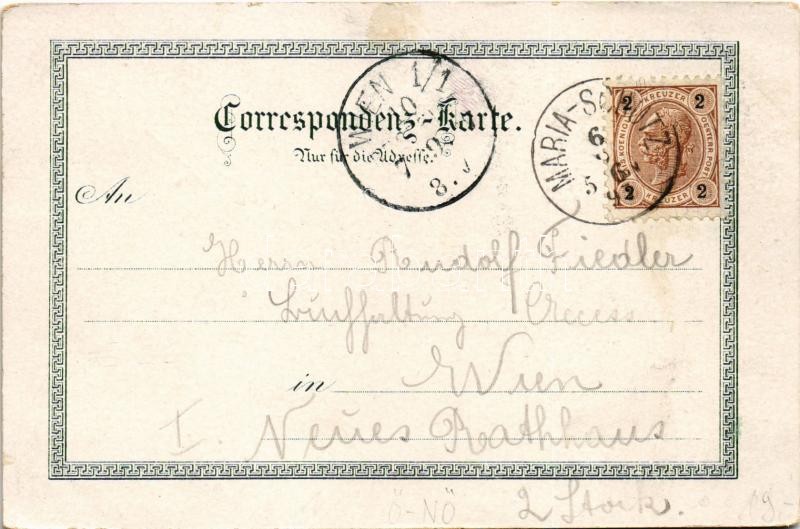 Correspondenz-Karte.
Nur für die Adresse.
WIEN 1/1
MARIA-SCHUTZ
2 KREUZER 2
2 KREUZER 2
An
Herrn Rudolf Fiedler
Buchhaltung Access
in Wien
I. Neues Rathhaus
2 Stock.
Ö-NÖ